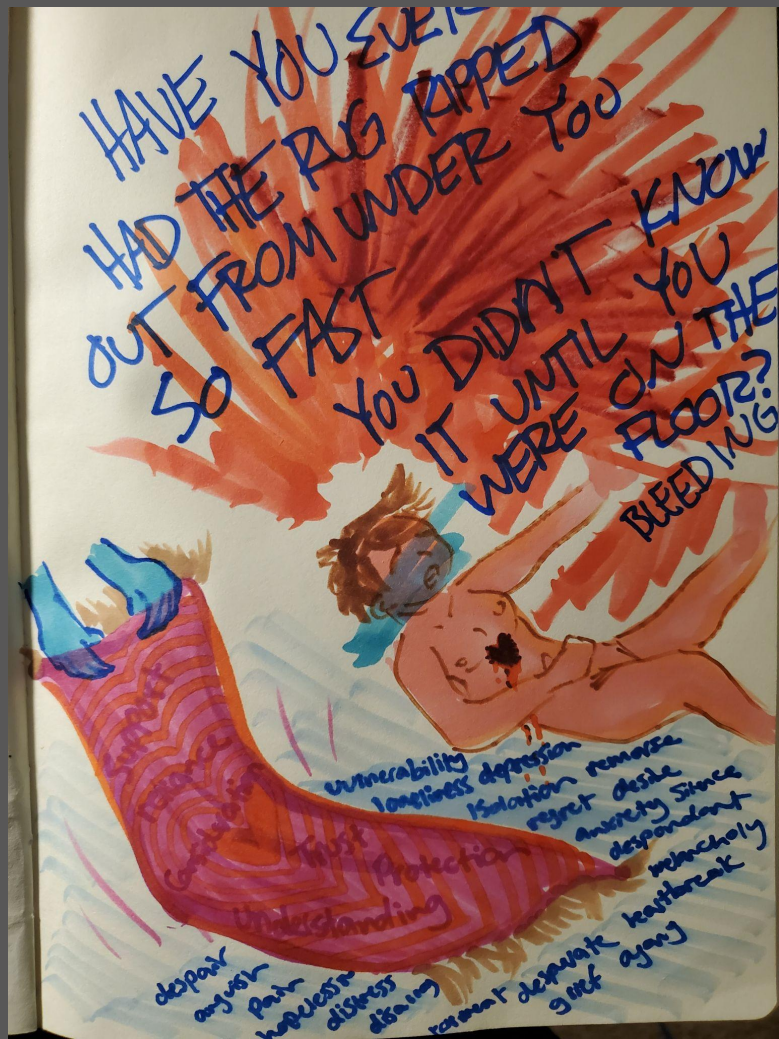 HAVE YOU EVER
HAD THE RUG RIPPED
OUT FROM UNDER YOU
SO FAST
YOU DIDN'T KNOW
IT UNTIL YOU
WERE ON THE
FLOOR?
BLEEDING
Support
Patience
Consideration
Trust
Protection
Understanding
vulnerability
loneliness depression
isolation remorse
regret desire
anxiety silence
despondant
melancholy
heartbreak
desperate
agany
grief
torment
despair
anguish
pain
hopeless
distress